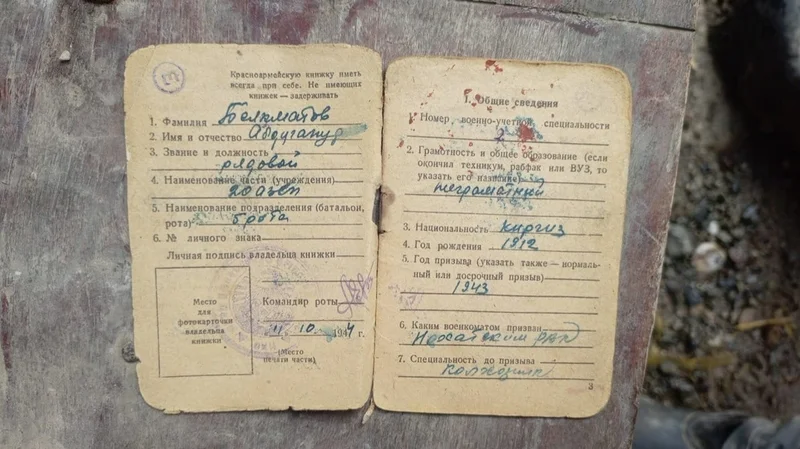 Красноармейскую книжку иметь
всегда при себе. Не имеющих
книжек — задерживать
1. Фамилия
2. Имя и отчество Абдугапур
3. Звание и должность
рядовой
4. Наименование части (учреждения)
5. Наименование подразделения (батальон,
рота) 5 рота
6. № личного знака
Личная подпись владельца книжки
Место
для
фотокарточки
владельца
книжки
Командир роты
11 10 1944 г.
(Место
печати части)
I. Общие сведения
1. Номер военно-учетной специальности
2
2. Грамотность и общее образование (если
окончил техникум, рабфак или ВУЗ, то
указать его название)
неграмотный
3. Национальность киргиз
4. Год рождения 1912
5. Год призыва (указать также — нормаль-
ный или досрочный призыв)
1943
6. Каким военкоматом призван
7. Специальность до призыва
колхозник
3